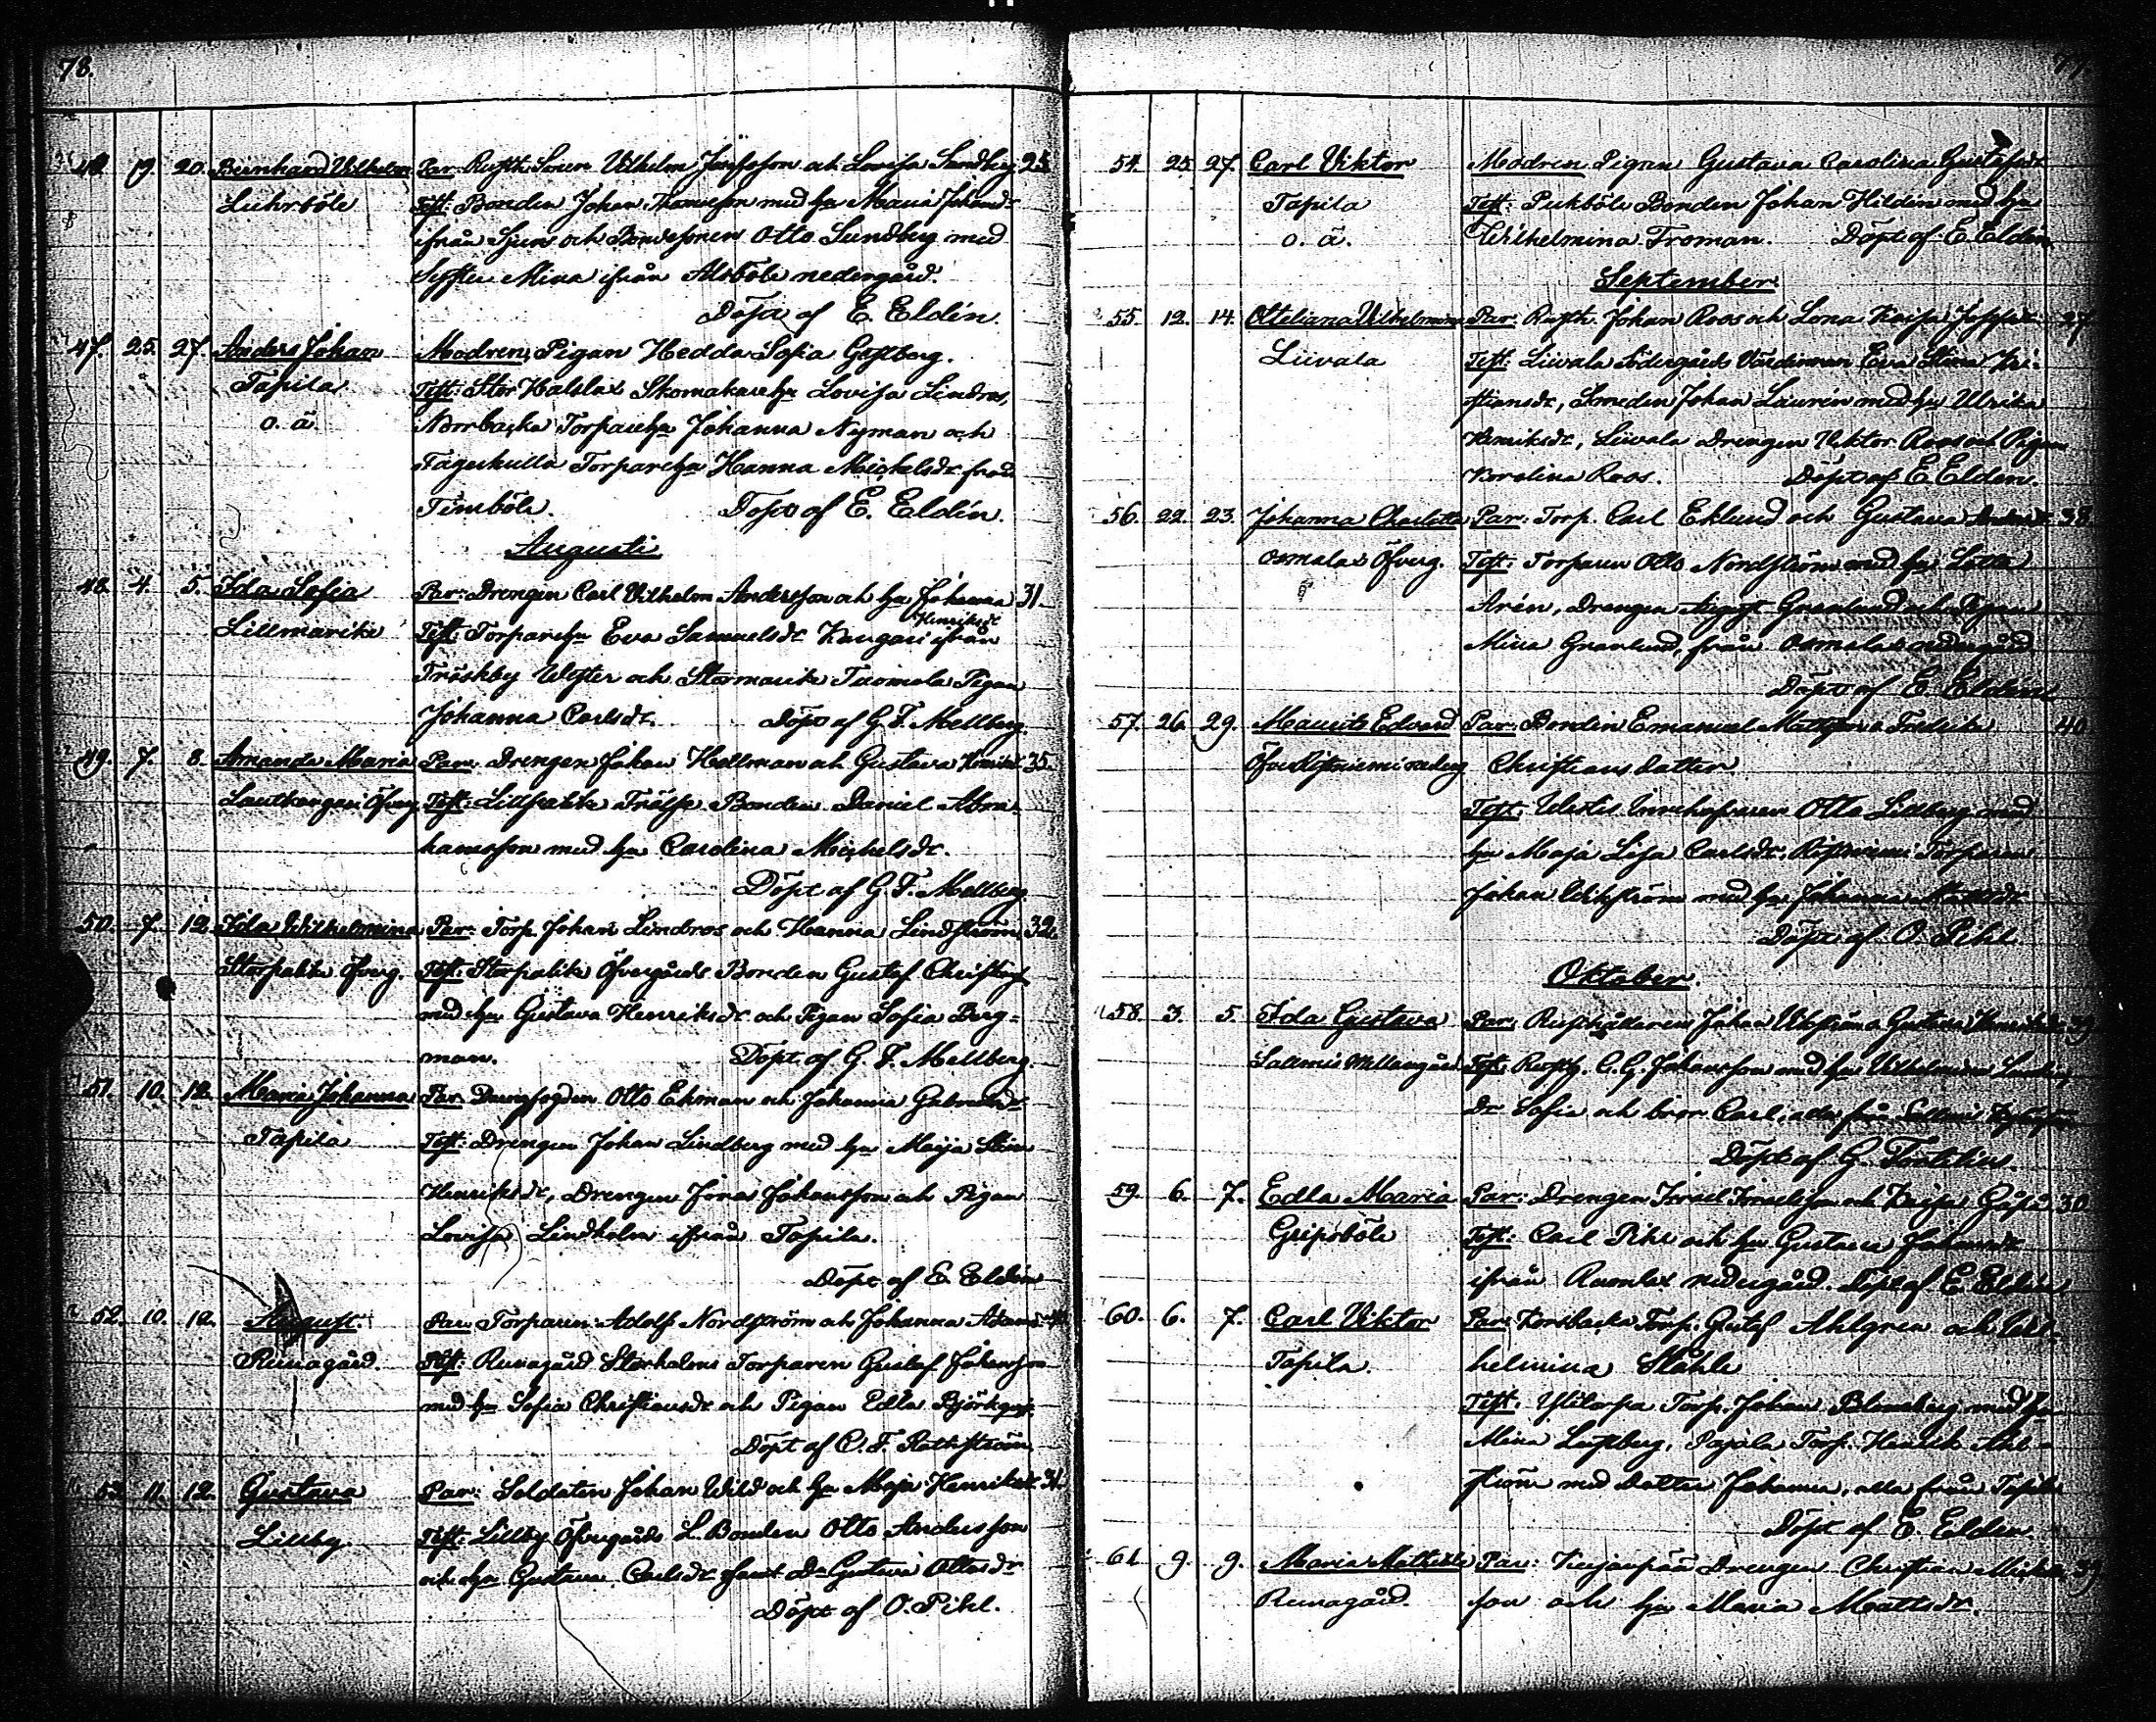 78.
46. 19. 20. Bernhard Vilhelm Par: Rusth. Sonen Vilhelm Josefsson och Lovisa Sundberg 25
Luhrböle Test: Bonden Johan Thomesson med hu Maria Johansdr
ifrån och Bondesonen Otto Sundberg med
Syster Mina ifrån nedergård.
Döpt af E. Eldén.
47. 25. 27. Anders Johan Modren, Pigan Hedda Sofia
Tapila Test: Stor Halslax Skomakarehu Lovisa Lindros,
o. ä Norbacka Torparehu Johanna Nyman och
Fagerkulla Torparehu Hanna Michelsdr från
Timböle. Döpt af E. Eldén.
Augusti
48. 4. 5. Ida Sofia Par: Drengen Carl Vilhelm Andersson och hu Johanna 31.
Henriksdr
Lillmarike Test: Torparehu Eva Samuelsdr Kangari ifrån
Träskby Wester och Stormarike Tuomola Pigan
Johanna Carlsdr. Döpt af G. F. Mellberg.
49. 7. 8. Amanda Maria Par: Drengen Johan Hellman och Gustava 35.
Lautkangari Öfverg Test: Lillpalike Frälse Bonden Daniel Abra-
hamsson med hu Carolina Michelsdr.
Döpt af G. F. Mellberg
50. 7. 12. Ida Wilhelmina Par: Torp. Johan Lindros och Hanna Lindström 32.
Storpalike Öfverg. Test: Storpalike Öfvergårds Bonden Gustaf
med hu Gustava Henriksdr och Pigan Sofia Berg-
man. Döpt af G. F. Mellberg.
51. 10. 12. Maria Johanna Par: Otto Ekman och Johanna
Tapila Test: Drengen Johan Lindberg med hu Maija Stina
Henriksdr, Drengen Jonas Johansson och Pigan
Lovisa Lindholm ifrån Tapila.
Döpt af E. Eldén
52. 10. 12. August Par: Torparen Adolf Nordström och Johanna
Runagård. Test: Runagård Storholms Torparen Gustaf Johansson
med hu Sofia Christiansdr och Pigan Edla Björkqvist.
Döpt af C. F.
53. 11. 12. Gustava Par: Soldaten Johan Wild och hu Maja Henriksdr 31.
Lillby Test: Lillby Öfvergårds L. Bonden Otto Andersson
och hu Gustava Carlsdr samt Dr Gustava Ottosdr
Döpt af O. Pihl.
54. 25. 27. Carl Viktor Modren Pigan Gustava Carolina Gustafsdr
Tapila Test: Pukböle Bonden Johan Hildén med hu
o. ä. Wilhelmina Froman. Döpt af E. Eldén
September
55. 12. 14. Otteliana Vilhelmina Par: Rusth. Johan Roos och Lena Kaisa 27
Liivala Test: Liivala Södergårds Värdinnan Eva Stina Kri-
stiansdr, Smeden Johan Laurén med hu Ulrika
Henriksdr, Liivala Drengen Viktor Roos och Pigan
Karolina Roos. Döpt af E. Eldén.
56. 22. 23. Johanna Charlotta Par: Torp. Carl Eklund och Gustava 38
Osmalax Öfverg. Test: Torparen Otto Nordström med hu Lotta
Arén, Drengen August Granlund och Pigan
Mina Granlund, från Osmalax nedergård
Döpt af E. Eldén
57. 26. 29. Maurits Edvard Par: Bonden Emanuel Mattsson o Fredrika 40
Christiansdotter
Test: Otto Lillberg med
hu Maja Lisa Carlsdr, Torparen
Johan Wikström med hu Johanna Mattsdr
Döpt af O. Pihl
Oktober.
58. 3. 5. Ida Gustava Par: Rusthållaren Johan o Gustava 39
Mellangård Test: Rusth. C. G. Johansson med hu Vilhelmina
Dr Sofia och bror Carl, alla från
Döpt af G.
59. 6. 7. Edla Maria Par: Drengen Israel Israelsson och Kaisa 30
Gripsböle Test: Carl Pihl och hu Gustava Johansdr
ifrån nedergård. Döpt af E. Eldén
60. 6. 7. Carl Viktor Par: Korsbacka Torp. Gustaf Ahlgren och Vil-
Tapila. helmina Ståhle
Test. Ylitorpa Torp. Johan Blomberg med hu
Mina, Pajala Torp. Henrik Ahl-
ström med dotter Johanna, alla från Tapila
Döpt af E. Eldén
61. 9. 9. Maria Mathilda Par: Drengen Christian 39
Runagård. son och hu Maria Mattsdr.